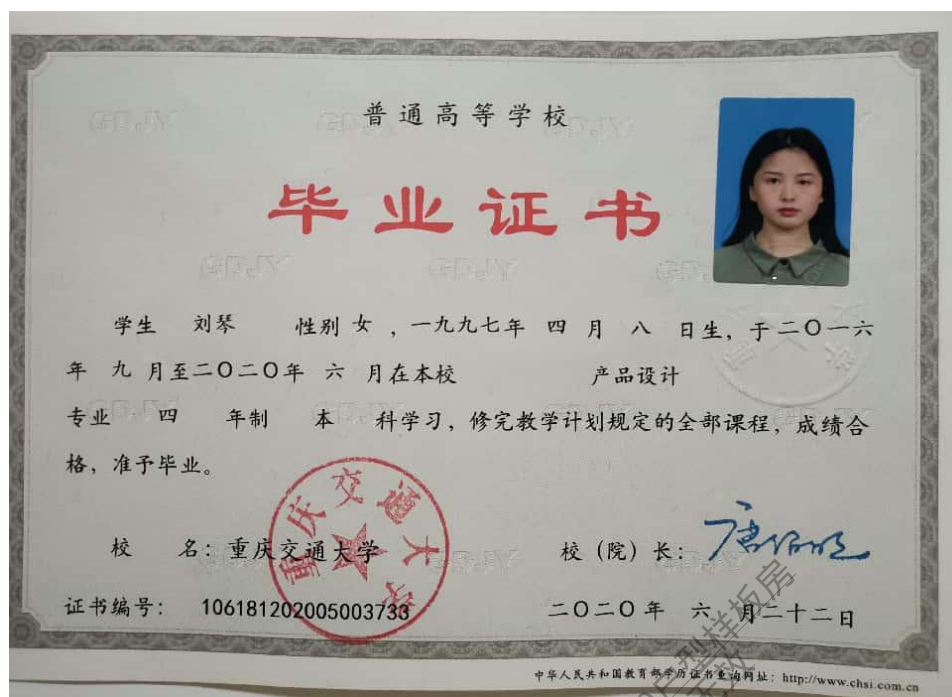 普通高等学校
毕业证书
学生 刘琴 性别 女 ，一九九七年 四 月 八 日生，于二〇一六
年 九 月至二〇二〇年 六 月在本校 产品设计
专业 四 年制 本 科学习，修完教学计划规定的全部课程，成绩合
格，准予毕业。
校 名：重庆交通大学 校（院）长：唐伯明
重庆交通大学
证书编号： 106181202005003733 二〇二〇年 六 月二十二日
中华人民共和国教育部学历证书查询网址：http://www.chsi.com.cn